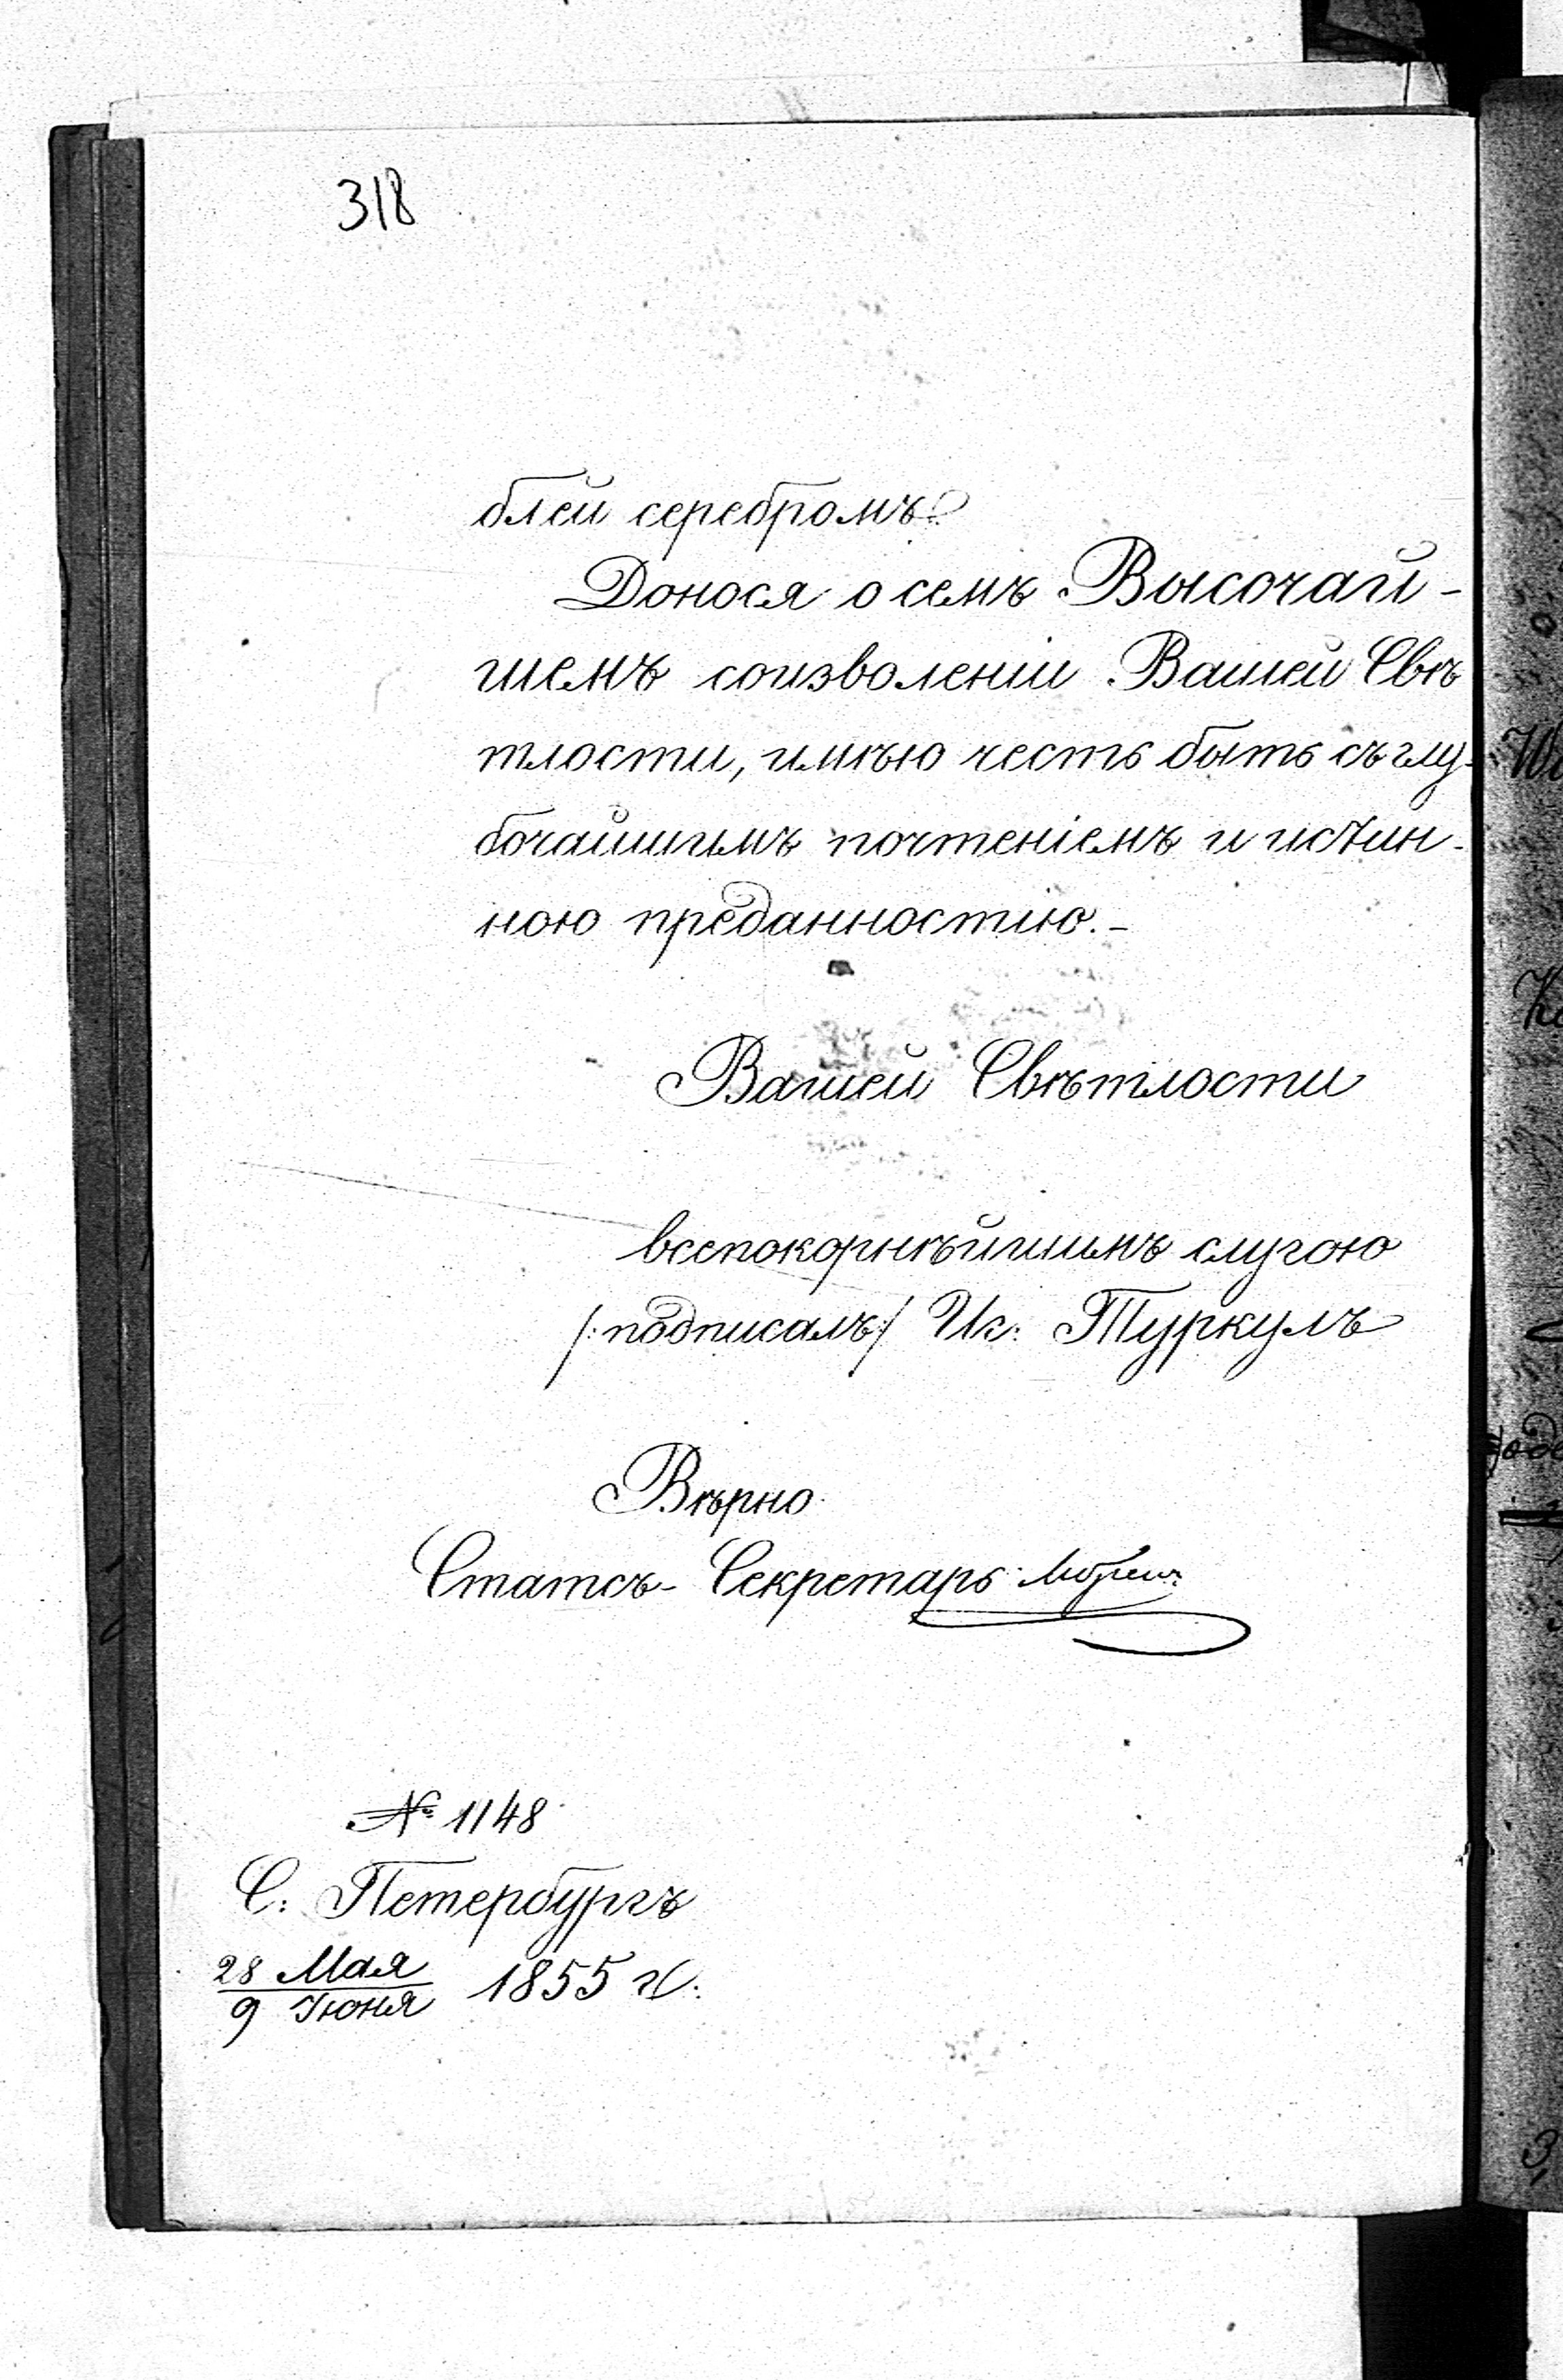 318
блей серебромъ.
Донося о семъ Высочай-
шемъ соизволеніи Вашей Свѣ
тлости, имѣю честь быть съ глу-
бочайшимъ почтеніемъ и истин-
ною преданностію.-
Вашей Свѣтлости
всепокорнѣйшимъ слугою
/:подписалъ:/ Иг: Туркулъ
Вѣрно
Статсъ-Секретарь
№ 1148
С. Петербургъ
28 Мая
9 Іюня 1855 г.